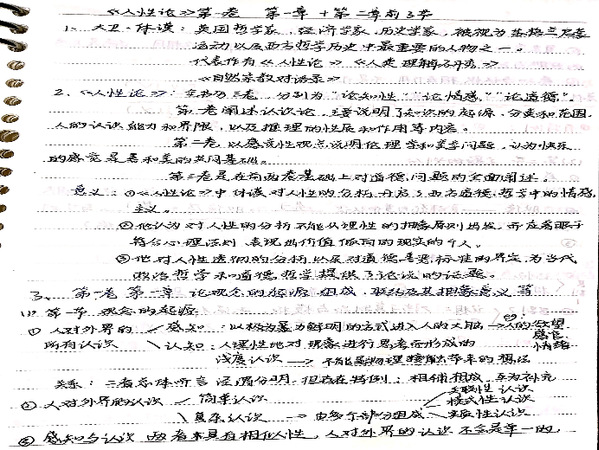 《人性论》第一卷 第一章+第二章前3节
1、大卫·休谟：英国哲学家，经济学家，历史学家，被视为苏格兰启蒙
运动以及西方哲学历史中最重要的人物之一。
代表作有《人性论》《人类理解研究》
《自然宗教对话录》
2、《人性论》：全书为三卷，分别为“论知性”“论情感”“论道德”。
第一卷阐述认识论，主要说明了知识的起源、分类和范围，
人的认识能力和界限，以及推理的性质和作用等内容。
第二卷以感觉性观点说明伦理学和美学问题，认为快乐
的感觉是善和美的共同基础。
第三卷是在前两卷基础上对道德问题的全面阐述。
意义：①《人性论》中休谟对人性的分析，开启了西方道德哲学中的情感
主义。
②他认为对人性的分析不能从理性的抽象原则出发，而应着眼于
符合心理法则、表现出行值倾向的现实的个人。
③他对人性透彻的分析以及对道德善恶标准的界定，为当代
政治哲学和道德哲学提供了论说的论题。
3、第一卷第一章 论观念的起源、组成、联结及其抽象意义等
(1) 第一节 观念的起源
① 人对外界的 感知：以极为暴力鲜明的方式进入人的大脑→人的欲望
所有认识 认识：人理性地对现象进行思考而形成的 感官
浅度认识 → 不能是物理接触出带来的想法 情绪
关系：二者总体听言泾渭分明，但存在特例；相辅相成，互为补充
② 人对外界的认识 简单认识 关联性认识
模式性认识
复杂认识 → 由多个部分组成 实质性认识
③ 感知与认识两者本具有相似性，人对外界的认识不会是单一的，